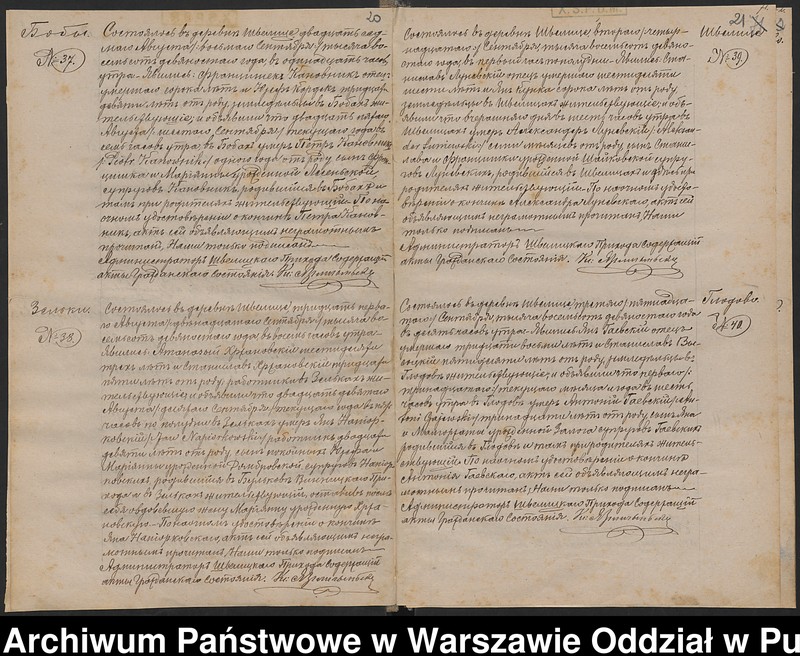 20
Бобы.
№ 37.
Состоялось въ деревнѣ Швелице двадцать седь-
маго Августа /: восьмаго Сентября :/ тысяча во-
семьсотъ девяностаго года, въ одинадцать часовъ
утра. Явились: Францишекъ Кановникъ отецъ
умершаго сорока лѣтъ и
девяти лѣтъ отъ роду, земледѣльцы въ Бобахъ жи-
тельствующіе, и объявили что двадцать пятаго
Августа /: шестаго Сентября :/ текущаго года въ
семь часовъ утра въ Бобахъ умеръ Петръ Кановникъ
/: Piotr Kanownik :/ одного года отъ роду сынъ Фран-
цишка и Маріанны урожденной
супруговъ Кановникъ родившійся въ Бобахъ и
тамъ при родителяхъ жительствующій. По на-
очномъ удостовѣреніи о кончинѣ Петра Канов-
никъ, актъ сей объявляющимъ неграмотнымъ
прочитанъ, Нами только подписанъ.
Администраторъ Швелицкаго Прихода Содержащій
акты Гражданскаго Состоянія. Кс.
Зелюки.
№ 38.
Состоялось въ деревнѣ Швелице тридцать перва-
го Августа /: двѣнадцатаго Сентября :/ тысяча во-
семьсотъ девяностаго года въ восемь часовъ утра.
Явились: Атаназій Хржановскій шестидесяти
трехъ лѣтъ и Станиславъ Хржановскій тридцати
пяти лѣтъ отъ роду, работники въ Зелюкахъ жи-
тельствующіе, и объявили что двадцать девятаго
Августа /: десятаго Сентября :/ текущаго года въ
часовъ по полудни въ Зелюкахъ умеръ Янъ Напюр-
ковскій /: Jan Napiórkowski :/ работникъ двадцати
девяти лѣтъ отъ роду, сынъ покойныхъ
Маріанны урожденной Домбровской, супруговъ Напюр-
ковскихъ родившійся въ
хода и въ Зелюкахъ жительствующій, оставивъ послѣ
себя овдовѣвшую жену Маріанну урожденную Хржа-
новскую. По наочномъ удостовѣреніи о кончинѣ
Яна Напюрковскаго, актъ сей объявляющимъ негра-
мотнымъ прочитанъ, Нами только подписанъ.
Администраторъ Швелицкаго Прихода Содержащій
акты Гражданскаго Состоянія. Кс.
21
Швелице
№ 39.
Состоялось въ деревнѣ Швелице втораго /: четыр-
надцатаго :/ Сентября, тысяча восемьсотъ девяно-
стаго года, въ первый часъ по полудни. Явились: Ста-
ниславъ Лутевскій отецъ умершаго шестидесяти
шести лѣтъ и Янъ Кунка сорока лѣтъ отъ роду,
земледѣльцы въ Швелицахъ жительствующіе, и объ-
явили что вчерашняго дня въ шесть часовъ утра въ
Швелицахъ умеръ Александръ Лутевскій /: Aleksan-
der :/ семи мѣсяцевъ отъ роду, сынъ Стани-
слава и Францишки урожденной супру-
говъ Лутевскихъ, родившійся въ Швелицахъ и тамъ при
родителяхъ жительствующій. По наочномъ удосто-
вѣреніи о кончинѣ Александра Лутевскаго, актъ сей
объявляющимъ неграмотнымъ прочитанъ, Нами
только подписанъ.
Администраторъ Швелицкаго Прихода Содержащій
акты Гражданскаго Состоянія. Кс.
Глодово.
№ 40.
Состоялось въ деревнѣ Швелице третьяго /: пятнадца-
таго :/ Сентября, тысяча восемьсотъ девяностаго года
въ десять часовъ утра. Явились: Янъ Гаевскій отецъ
умершаго тридцати восьми лѣтъ и Станиславъ
пятидесяти лѣтъ отъ роду, земледѣльцы въ
Глодовѣ жительствующіе, и объявили что перваго /:
тринадцатаго :/ текущаго мѣсяца и года въ шесть
часовъ утра въ Глодовѣ умеръ Антоній Гаевскій /: An-
toni Gajewski :/ тринадцати лѣтъ отъ роду, сынъ Яна
и Малгоржаты урожденной супруговъ Гаевскихъ
родившійся въ Глодовѣ и тамъ при родителяхъ житель-
ствующій. По наочномъ удостовѣреніи о кончинѣ
Антонія Гаевскаго, актъ сей объявляющимъ негра-
мотнымъ прочитанъ, Нами только подписанъ.
Администраторъ Швелицкаго Прихода Содержащій
акты Гражданскаго Состоянія. Кс.
Archiwum Państwowe w Warszawie Oddział w Pu